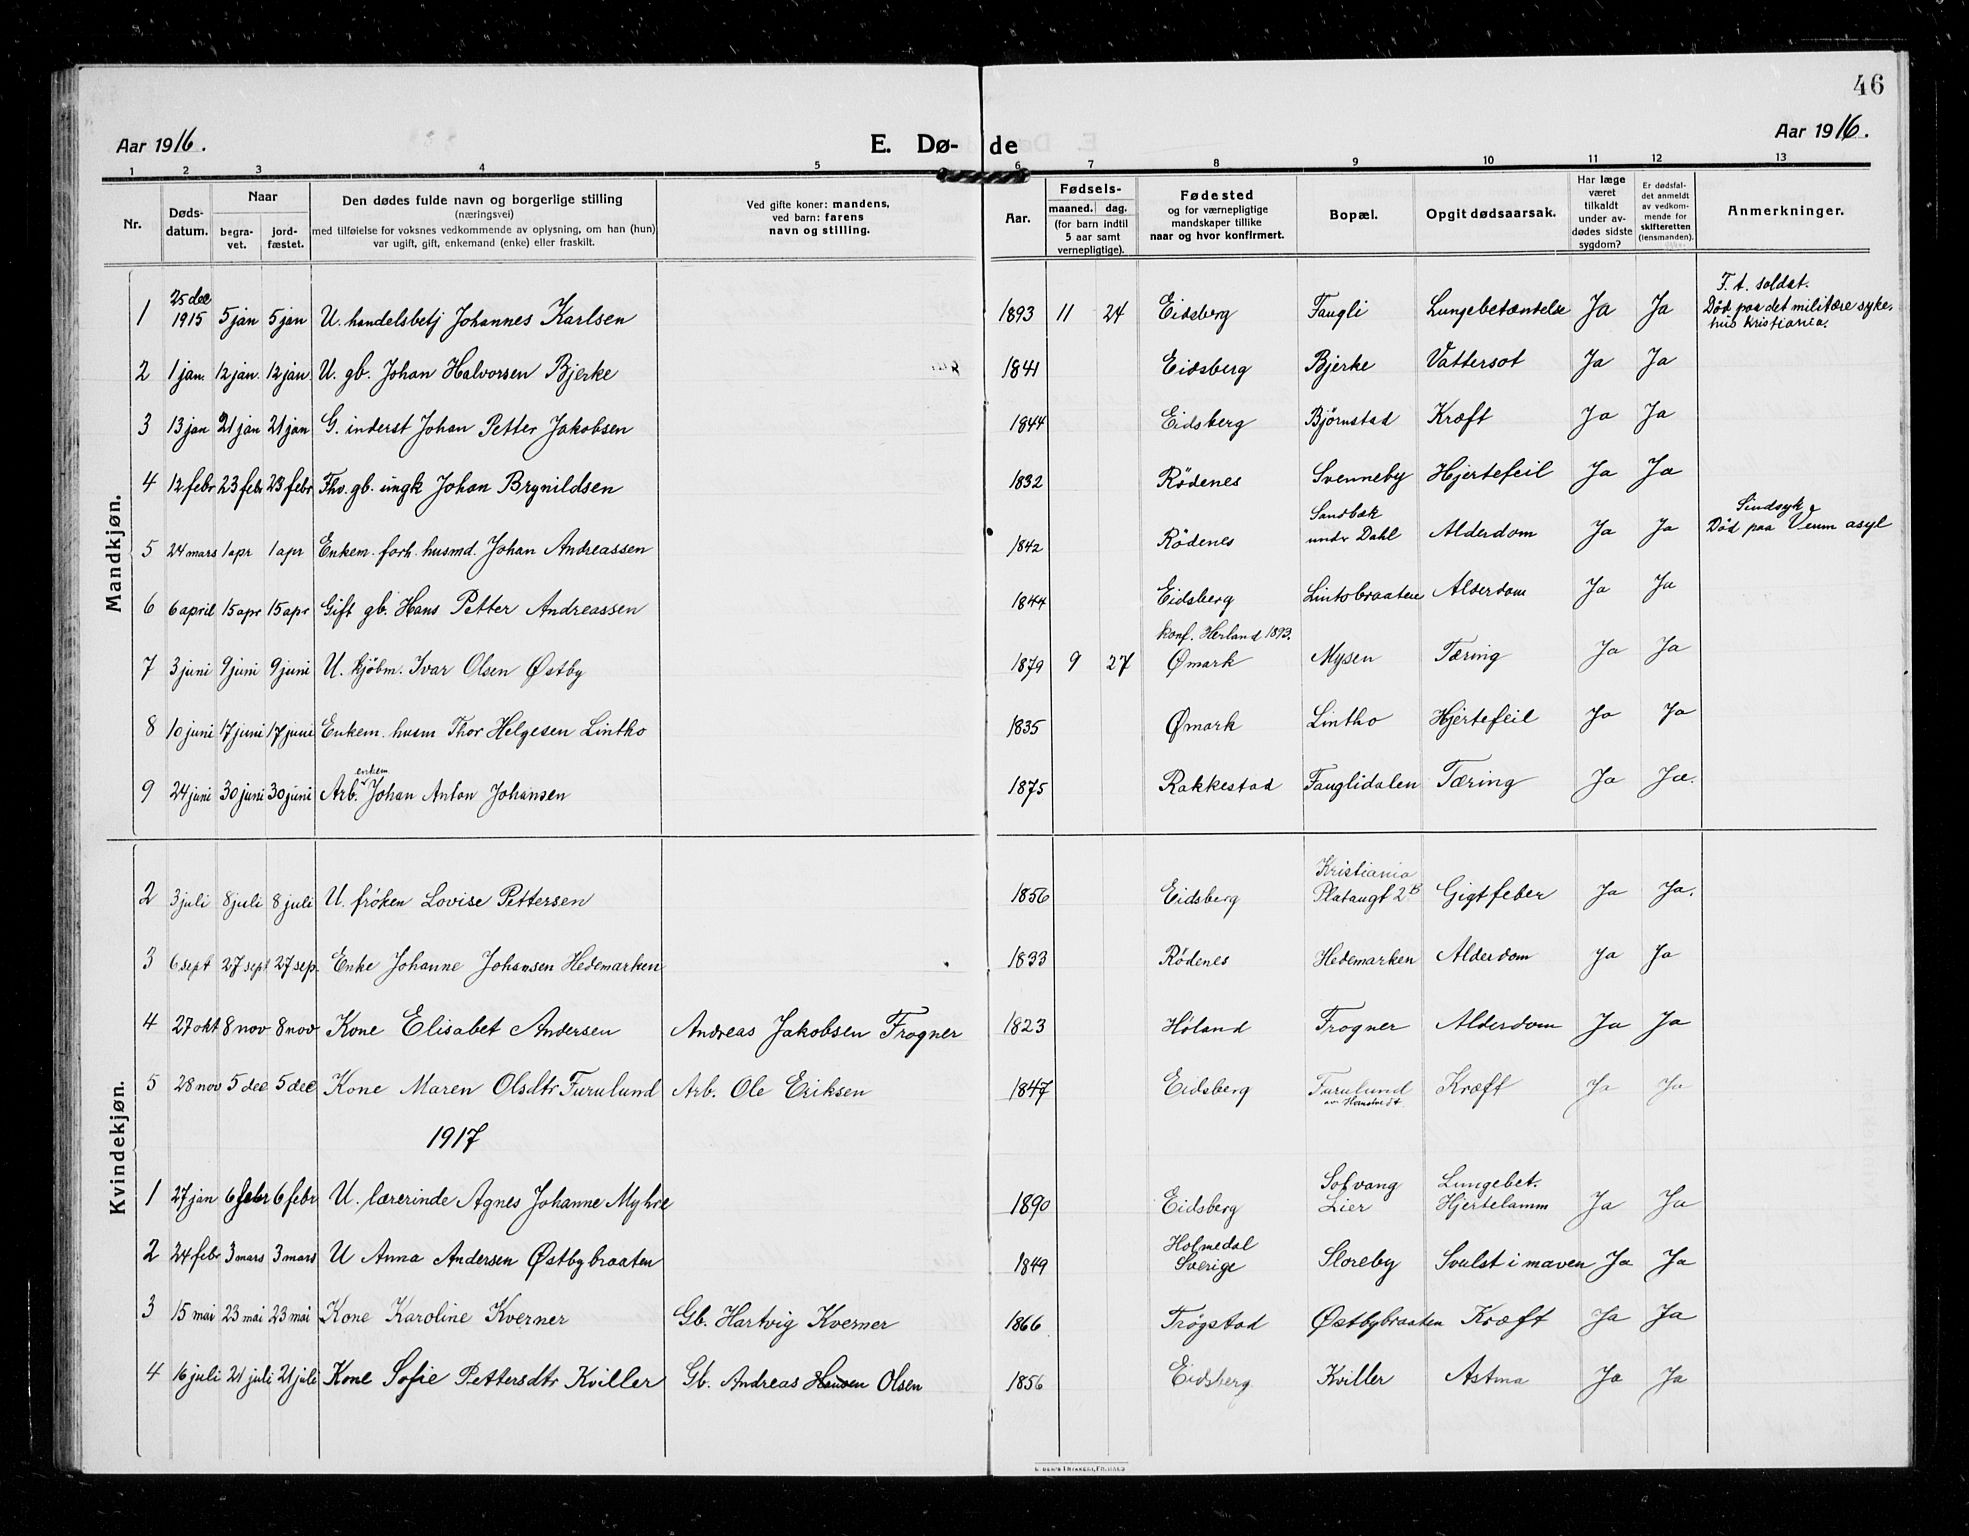 46
Aar 1916.
E. Dø-
de
Aar 1916.
1 2 3 4 5 6 7 8 9 10 11 12 13
Nr.
Døds-
datum.
Naar
begra-
vet.
jord-
fæstet.
Den dødes fulde navn og borgerlige stilling
(næringsvei)
med tilføielse for voksnes vedkommende av oplysning, om han (hun)
var ugift, gift, enkemand (enke) eller fraskilt.
Ved gifte koner: mandens,
ved barn: farens
navn og stilling.
Aar.
Fødsels-
maaned. dag.
(for barn indtil
5 aar samt
vernepligtige).
Fødested
og for værnepligtige
mandskaper tillike
naar og hvor konfirmert.
Bopæl.
Opgit dødsaarsak.
Har læge
været
tilkaldt
under av-
dødes sidste
sygdom?
Er dødsfal-
det anmeldt
av vedkom-
mende for
skifteretten
(lensmanden).
Anmerkninger.
Mandkjøn.
25 dec
F. t. soldat.
1 1915 5 jan 5 jan U. handelsbetj Johannes Karlsen 1893 11 24 Eidsberg Faugli Lungebetændelse Ja Ja Død paa det militære syke-
hus Kristiania.
2 1 jan. 12 jan. 12 jan U. gb. Johan Halvorsen Bjerke 1841 Eidsberg Bjerke Vattersot Ja Ja
3 13 jan 21 jan 21 jan G. inderst Johan Petter Jakobsen 1844 Eidsberg Bjørnstad Kræft Ja Ja
4 12 febr 23 febr 23 febr Fhv. gb. ungk Johan Brynildsen 1832 Rödenes Svenneby Hjertefeil Ja Ja
Sandbæk
Sindsyk
5 24 mars 1 apr 1 apr Enkem. forh. husmd. Johan Andreassen 1842 Rödenes under Dahl Alderdom Ja Ja Død paa Veum asyl
6 6 april 15 apr 15 apr Gift gb. Hans Petter Andreassen 1844 Eidsberg Lintobraaten Alderdom Ja Ja
konf. Herland 1893.
7 3 juni 9 juni 9 juni U. kjöbm. Ivar Olsen Østby 1879 9 27 Ømark Mysen Tæring Ja Ja
8 10 juni 17 juni 17 juni Enkem. husm Thor Helgesen Lintho 1835 Ømark Lintho Hjertefeil Ja Ja
enkem
9 24 juni 30 juni 30 juni Arb. Johan Anton Johansen 1875 Rakkestad Fauglidalen Tæring Ja Ja.
Kvindekjøn.
Kristiania
2 3 juli 8 juli 8 juli U. fröken Lovise Pettersen 1856 Eidsberg Plataugt 2B Gigtfeber Ja Ja.
3 6 sept 27 sept 27 sep. Enke Johanne Johansen Hedemarken 1833 Rödenes Hedemarken Alderdom Ja Ja
4 27 okt 8 nov 8 nov Kone Elisabet Andersen Andreas Jakobsen Frogner 1823 Höland Frogner Alderdom Ja Ja
5 28 nov 5 dec 5 dec Kone Maren Olsdtr Furulund Arb. Ole Eriksen 1847 Eidsberg Furulund Kræft Ja Ja
1917
Solvang Lungebet.
1 27 jan 6 febr 6 febr U. lærerinde Agnes Johanne Myhre 1890 Eidsberg Lier Hjertelamm Ja Ja
Holmedal
2 24 febr 3 mars 3 mars U Anna Andersen Østbybraaten 1849 Sverige Sloreby Svulst i maven Ja Ja
3 15 mai 23 mai 23 mai Kone Karoline Kverner Gb. Hartvig Kverner 1866 Trögstad Østbybraaten Kræft Ja Ja
4 16 juli 21 juli 21 juli Kone Sofie Pettersdtr Kviller Gb. Andreas Hansen Olsen 1856 Eidsberg Kviller Astma Ja Ja